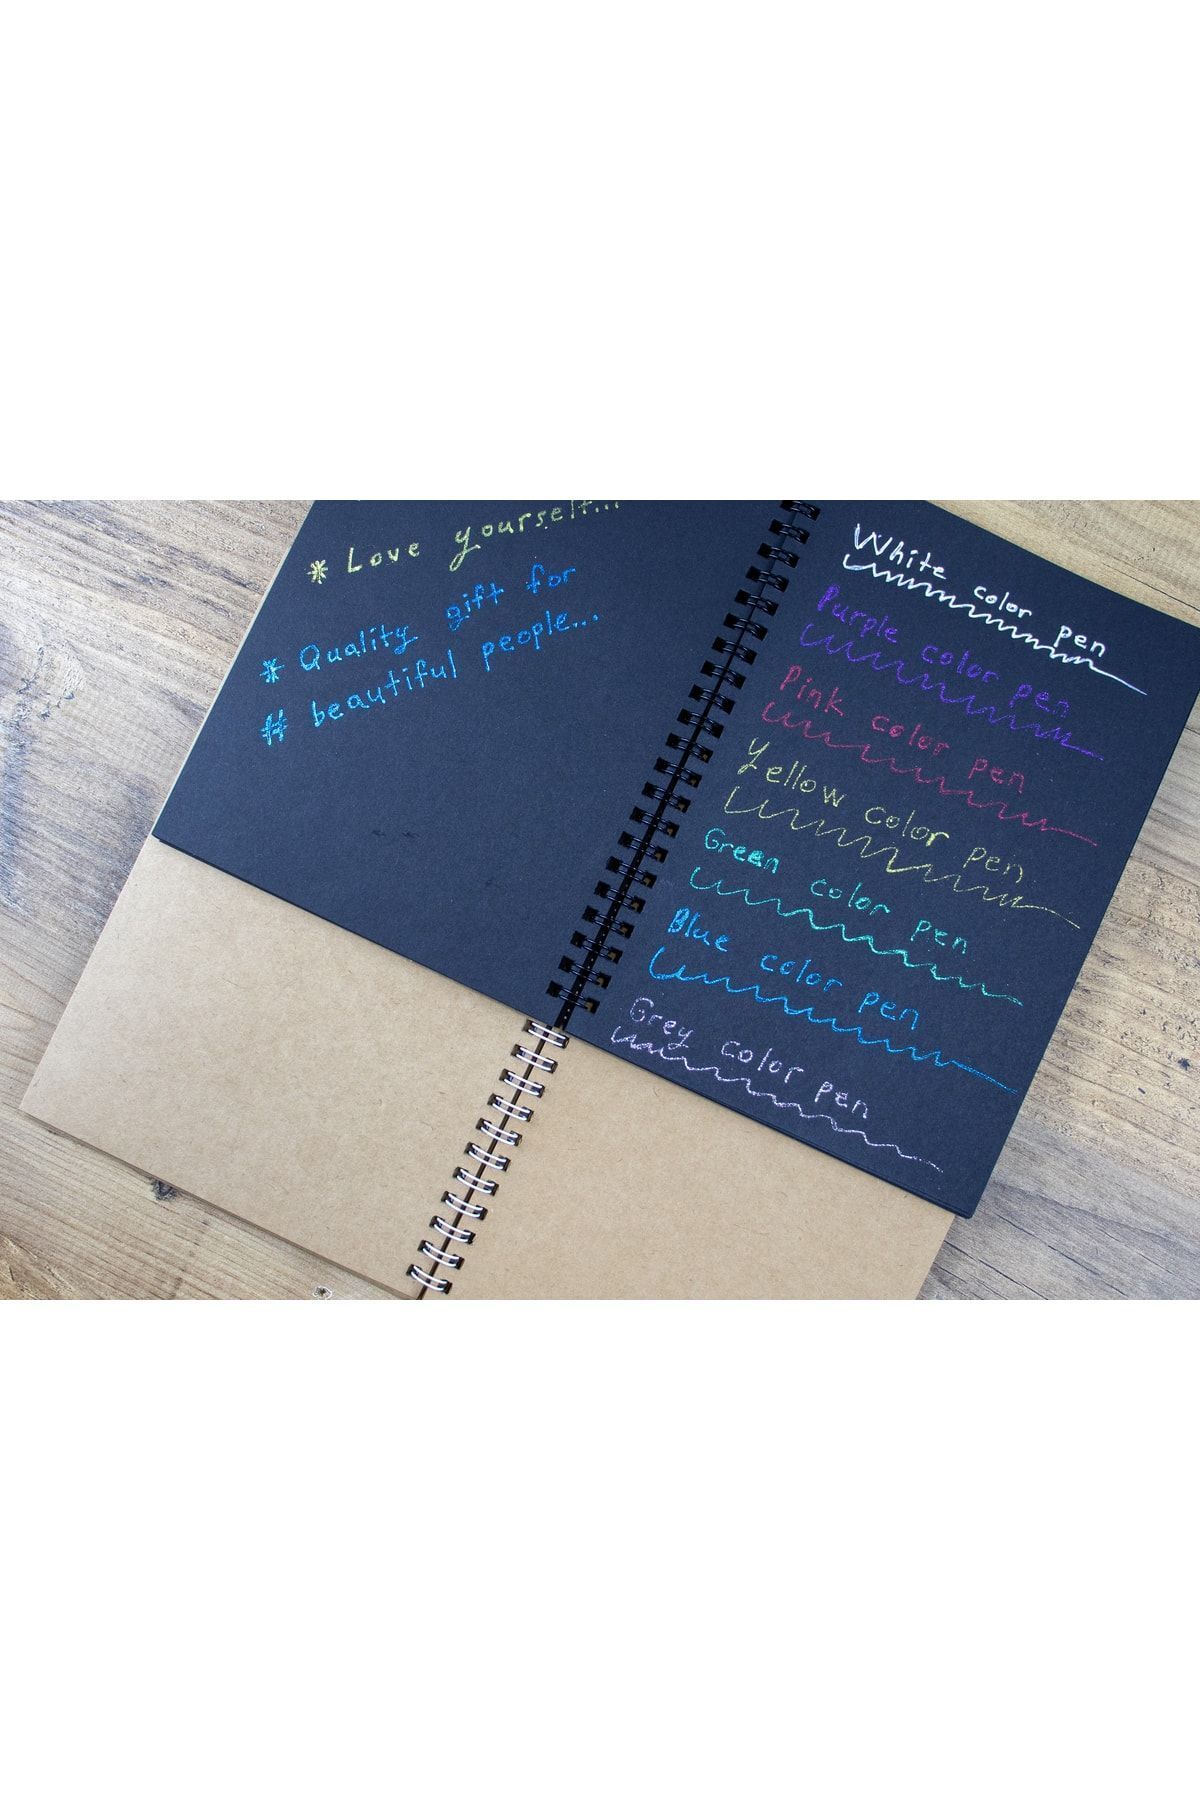 * Love yourself...
* Quality gift for
# beautiful people...
White color pen
Purple color pen
Pink color pen
Yellow color pen
Green color pen
Blue color pen
Grey color pen